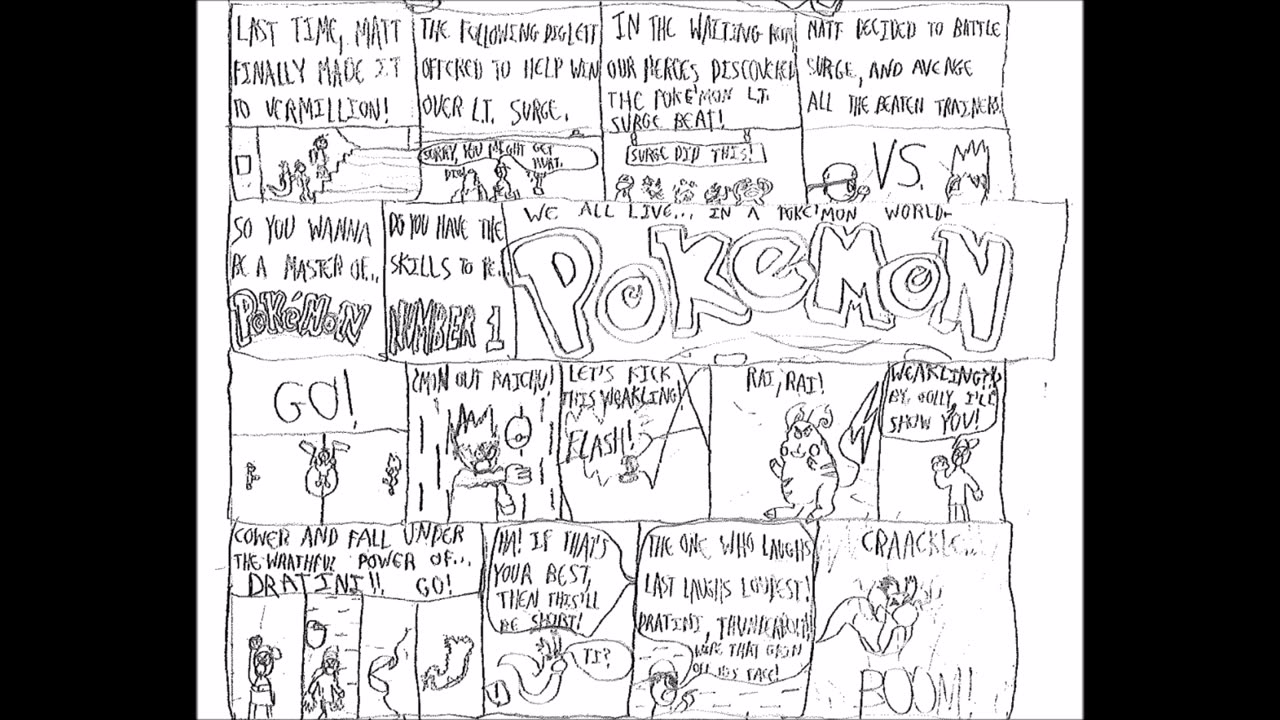 LAST TIME, MATT
FINALLY MADE IT
TO VERMILLION!
THE FOLLOWING DIGLETT
OFFERED TO HELP WIN
OVER L.T. SURGE.
SORRY, YOU MIGHT GET
HURT.
DIG
IN THE WAITING ROOM
OUR HEROES DISCOVERED
THE POKE'MON L.T.
SURGE BEAT!
SURGE DID THIS!
MATT DECIDED TO BATTLE
SURGE, AND AVENGE
ALL THE BEATEN TRAINERS
VS.
SO YOU WANNA
BE A MASTER OF...
POKé'MON
DO YOU HAVE THE
SKILLS TO BE..
NUMBER 1
WE ALL LIVE... IN A POKE'MON WORLD-
POKeMON
GO!
C'MON OUT RAICHU!
LET'S KICK
THIS WEAKLING!
FLASH!
RAI, RAI!
WEAKLING?!
BY GOLLY, I'LL
SHOW YOU!
COWER AND FALL UNDER
THE WRATHFUL POWER OF...
DRATINI!! GO!
HA! IF THAT'S
YOUR BEST,
THEN THIS'LL
BE SHORT!
TI?
THE ONE WHO LAUGHS
LAST LAUGHS LOUDEST!
DRATINI, THUNDERBOLT!
WIPE THAT GRIN
OFF HIS FACE!
CRAACKLE...
BOOM!